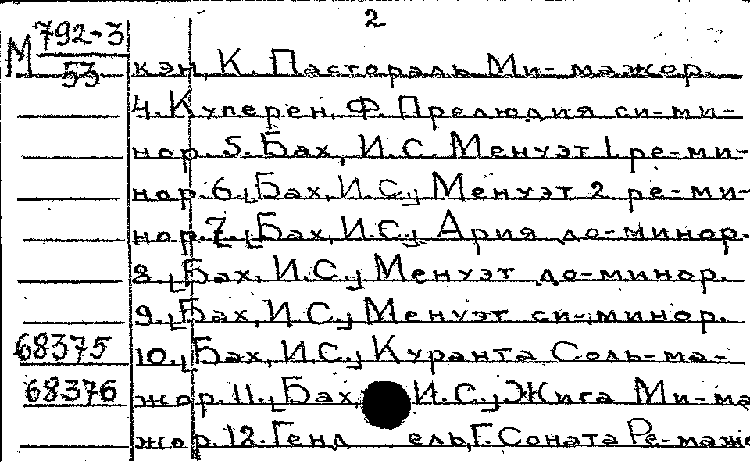 2
М 792-3
53
кэн, К. Пастораль Ми-мажор.
4. Куперен, Ф. Прелюдия си-ми-
нор. 5. Бах, И.С. Менуэт 1 ре-ми-
нор. 6. [Бах, И.С.] Менуэт 2 ре-ми-
нор. 7. [Бах, И.С.] Ария до-минор.
8. [Бах, И.С.] Менуэт до-минор.
9. [Бах, И.С.] Менуэт си-минор.
68375 10. [Бах, И.С.] Куранта Соль-ма-
68376 жор. 11. [Бах, И.С.] Жига Ми-ма
жор. 12. Гендель, Г. Соната Ре-маж